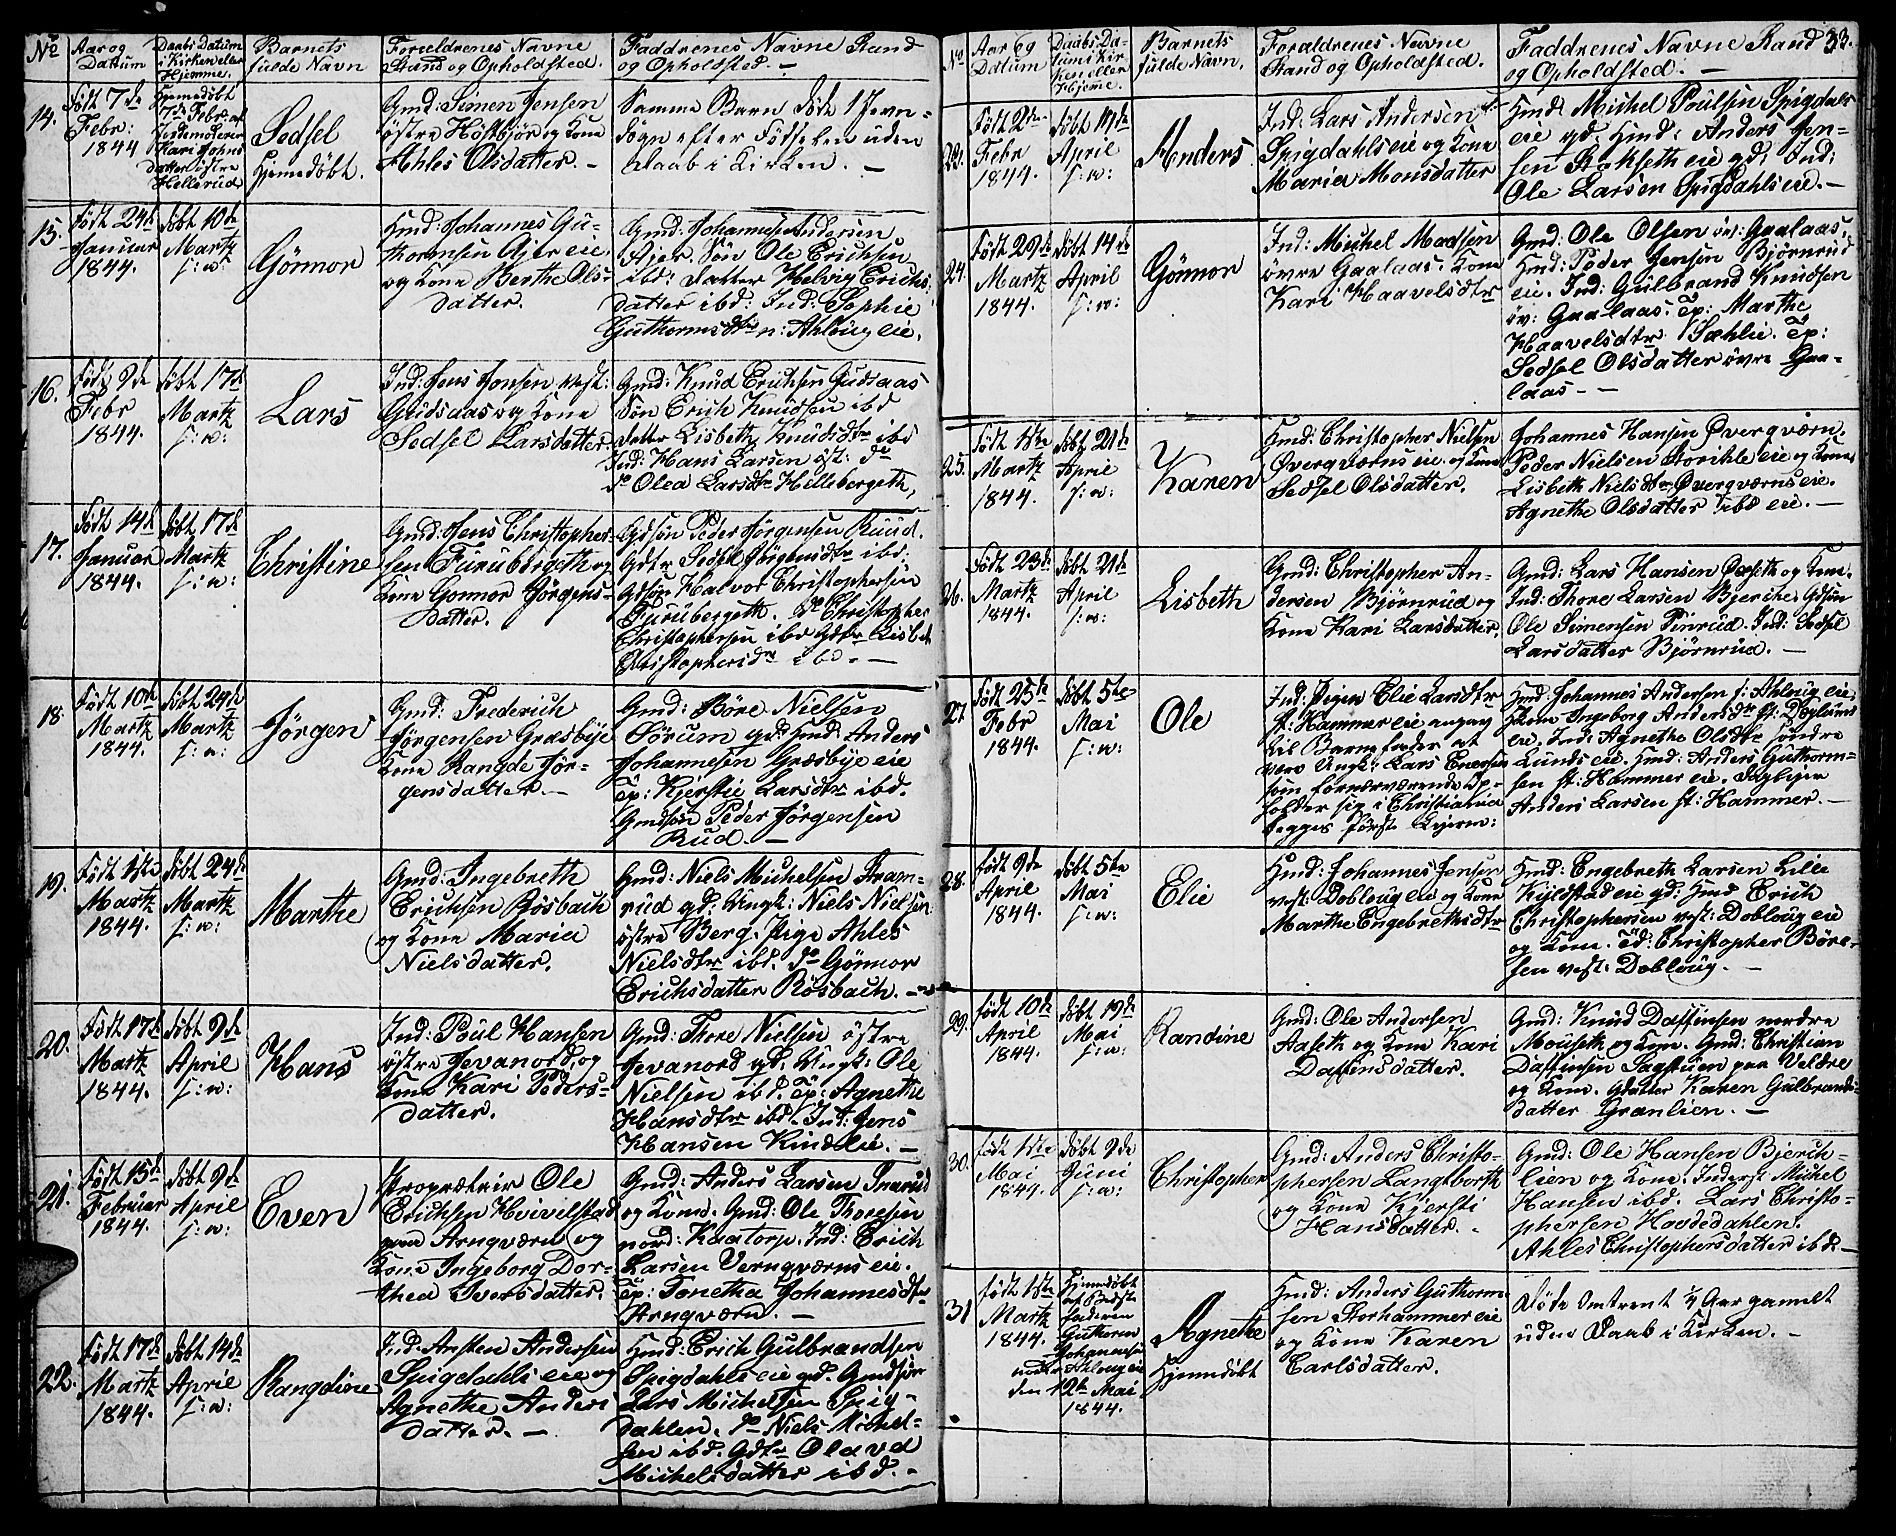 No
Aar og
Dattum
Daabs Datum
i Kirken eller
Hjemme.
Barnets
fulde Navn
Foreldrenes Navne
Stand og Opholdsted.
Faddrenes Navne Stand
og Opholdsted. —
14.
Født 7de
Febr:
1844
Hjemedøbt
7de Febr: af
Jordemoderen
Kari Johns
datter østre
Hellerud
Sedsel
Hjemedøbt.
Gmd: Simen Jensen
østre Høstbjør og Kone
Ahles Olsdatter. —
Samme Barn døde 1 Jevn-
døgn efter Fødselen uden
Daab i Kirken. —
15.
Født 24de
Januar
1844.
Døbt 10de
Martz
s: n:
Gönnor
Hmd: Johannes Gu-
thormsen Ajer eie
og Kone Berthe Ols-
datter.
Gmd: Johannes Andersen
Ajer. Søn Ole Erichsen
ibd: datter Helvig Erichs
datter ibd: Ind: Sophie
Guthormsdtr n: Ahloug eie.
16.
Født 9de
Febr
1844.
Døbt 17de
Martz
s: n:
Lars
Ind: Jens Jonsen vest:
Gudsaas og Kone
Sedsel Larsdatter
Gmd: Knud Erichsen Gudsaas
Søn Erich Knudsen ibd
datter Lisbeth Knudsdtr ibd
Ind: Hans Larsen øst: do
do Olea Larsdtr Hillebergeth,
17.
Født 14de
Januar
1844.
Døbt 17de
Martz
s: n:
Christine
Gmd: Jens Christopher
sen Furubergeth og
Kone Gönnor Jörgens-
datter.
Gdsøn Peder Jörgensen Ruud.
Gdtr Sedsel Jörgensdtr ibd.
Gdsøn Halvor Christophersen
Furubergeth. do Christopher
Christophersen ibd Gdtr Lisbet
Christophersdtr ibd. —
18.
Født 10de
Martz
1844.
Døbt 24de
Martz
s: n:
Jörgen
Gmd: Frederich
Jörgensen Græsbye
Kone Rangde Jör-
gensdatter. —
Gmd: Böre Nielsen
Sörum gd: Hmd: Anders
Johannesen Græsbye eie
Ep: Kjerstie Larsdtr ibd.
Gmdsøn Peder Jörgensen
Rud. —
19.
Født 1ste
Martz
1844.
Døbt 24de
Martz
s: n:
Marthe
Gmd: Ingebreth
Erichsen Rösbach
og Kone Maria
Nielsdatter.
Gmd: Niels Michelsen Fram-
rud gd: Ungk: Niels Nielsen
østre Berg. Pige Ahles
Nielsdtr ibd. do Gönnor
Erichsdatter Rösbach. —
20.
Født 17de
Martz
1844.
Døbt 9de
April
s: n:
Hans
Ind: Poul Hansen
østre Jevanord, og
Kone Kari Peders-
datter.
Gmd: Thore Nielsen østre
Jevanord gd. Ungk: Ole
Nielsen ibd. Ep: Agnethe
Hansdtr ibd. Ind: Jens
Hansen Kindlie. —
21.
Født 15de
Februar
1844.
Døbt 9de
April
s: n:
Even
Proprætair Ole
Erichsen Hvivelstad
paa Arnqværn og
Kone Ingeborg Dor-
thea Iversdatter.
Gmd: Anders Larsen Snarud
og Kone. Gmd: Ole Thoresen
nord: Kaatorp. Ind: Erich
Larsen Vernqværns eie.
Ep: Tonetha Johannesdtr
Arnqværn. —
22.
Født 17de
Martz
1844.
Døbt 14de
April
s: n:
Rangdine
Ind: Austen Andersen
Spigdahls eie og
Agnethe Anders
datter. —
Hmd: Erich Gulbrandsen
Spigdahls eie gd. Gmdsøn
Lars Michelsen Spig-
dahlen. do Niels Michel-
sen ibd. Gdtr Olava
Michelsdatter ibd. —
No
Aar og
Datum
Daabs Da-
tum i Kir-
ken eller
Hjeme.
Barnets
fulde Navn.
Foraldrenes Navne
Stand og Opholdsted.
Faddrenes Navne Stand
og Opholdsted. —
33.
Født 2den
Febr
1844.
Døbt 14de
April
s: n:
Anders
Ind: Lars Andersen
Spigdahls eie og Kone
Maria Monsdatter
Hmd: Michel Poulsen Spigdals
eie gd: Hmd: Anders Jen-
sen Stokseth eie gd: Ind:
Ole Larsen Spigdahls eie. —
24.
Født 29de
Martz
1844.
Døbt 14de
April
s: n:
Gönnor
Ind: Michel Madsen
övre Gaalaas. Kone
Kari Haavelsdtr
Gmd: Ole Olsen öv: Gaalaas.
Hmd: Peder Jensen Bjørnrud
eie. Ind: Gulbrand Knudsen
öv: Gaalaas. Ep: Marthe
Haavelsdtr Sæhlie. Ep:
Sedsel Olsdatter övre Gaa-
laas — —
25.
Født 1ste
Martz
1844.
Døbt 21de
April
s: n:
Karen
Hmd: Christopher Nielsen
Øvergværns eie og Kone
Sedsel Olsdatter.
Johannes Hansen Øvergværn.
Peder Nielsen Storihle eie og Kone
Lisbeth Nielsdtr Øvergværns eie.
Agnethe Olsdatter ibd eie. —
26.
Født 23de
Martz
1844.
Døbt 21de
April
s: n:
Lisbeth
Gmd: Christopher An-
dersen Bjørnrud og
Kone Kari Larsdatter.
Gmd: Lars Hansen Dæseth og Kone.
Ind: Thore Larsen Bjerche. Gdsøn
Ole Simensen Finrud. Ind: Sedsel
Larsdatter Bjørnrud. —
27.
Født 25de
Febr
1844.
Døbt 5te
Mai
s: n:
Ole
Ind: Pigen Elie Larsdtr
st: Hammer eie angav
til Barnefader at
være Ungk: Lars Enersen
som forn nærværende Op-
holder sig i Christiania
begges første Leierm:
Hmd: Johannes Andersen s: Ahloug eie,
Kone Ingeborg Andersdtr st: Døglums
eie. Ind: Agnethe Olsdtr søndre
Lunds eie. Hmd: Anders Guthorm-
sen st: Hammer eie. Inderpigen
Anders Larsen st: Hammer. —
28.
Født 9de
April
1844.
Døbt 5te
Mai
s: n:
Elie
Hmd: Johannes Jensen
vest: Dobloug eie og Kone
Marthe Engebrethsdtr
Hmd: Engebreth Larsen Lille
Kyldstad eie gd: Hmd Erich
Christophersen vest: Dobloug eie
og Kone. Ed: Christopher Böre-
sen vest: Dobloug. —
29.
Født 10de
April
1844.
Døbt 19de
Mai
s: n:
Randine
Gmd: Ole Andersen
Aaseth og Kone Kari
Daffinsdatter.
Gmd: Knud Daffinsen nordre
Mouseth og Kone. Gmd: Christian
Daffinsen Sagstuen paa Veldre
og Kone. Gdatter Karen Gulbrands-
datter Granlien. —
30.
Født 1ste
Mai
1844.
Døbt 9de
Juni
s: n:
Christopher
Gmd: Anders Christo-
phersen Langborth
og Kone Kjersti
Hansdatter.
Gmd: Ole Hansen Bjerch-
lien og Kone. Inderst Michel
Hansen ibd. Lars Christo-
phersen Hovdedahlen.
Ahles Christophersdatter ibd —
31
Født 1ste
Martz
1844.
Hjemmedøbt
af Bedste
faderen
Guthorm
Johannesen
nordre Ahloug eie
den 12te Mai
1844.
Agnethe
Hjemmedøbt
Hmd: Anders Guthorm-
sen Storhammer eie
og Kone Karen
Carlsdatter.
Døde omtrent 1/4 Aar gammelt
uden Daab i Kirken. —